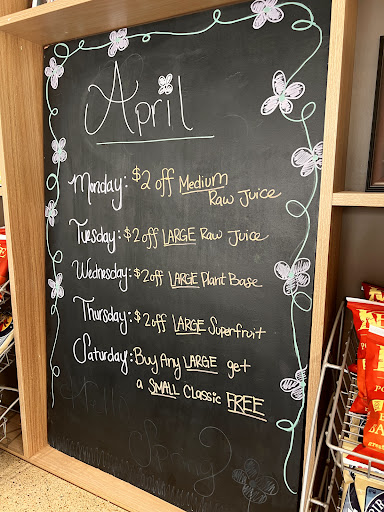 April
Monday: $2 off Medium
Raw Juice
Tuesday: $2 off LARGE Raw Juice
Wednesday: $2 off LARGE Plant Base
Thursday: $2 off LARGE Superfruit
Saturday: Buy Any LARGE get
a SMALL Classic FREE
April
Spring